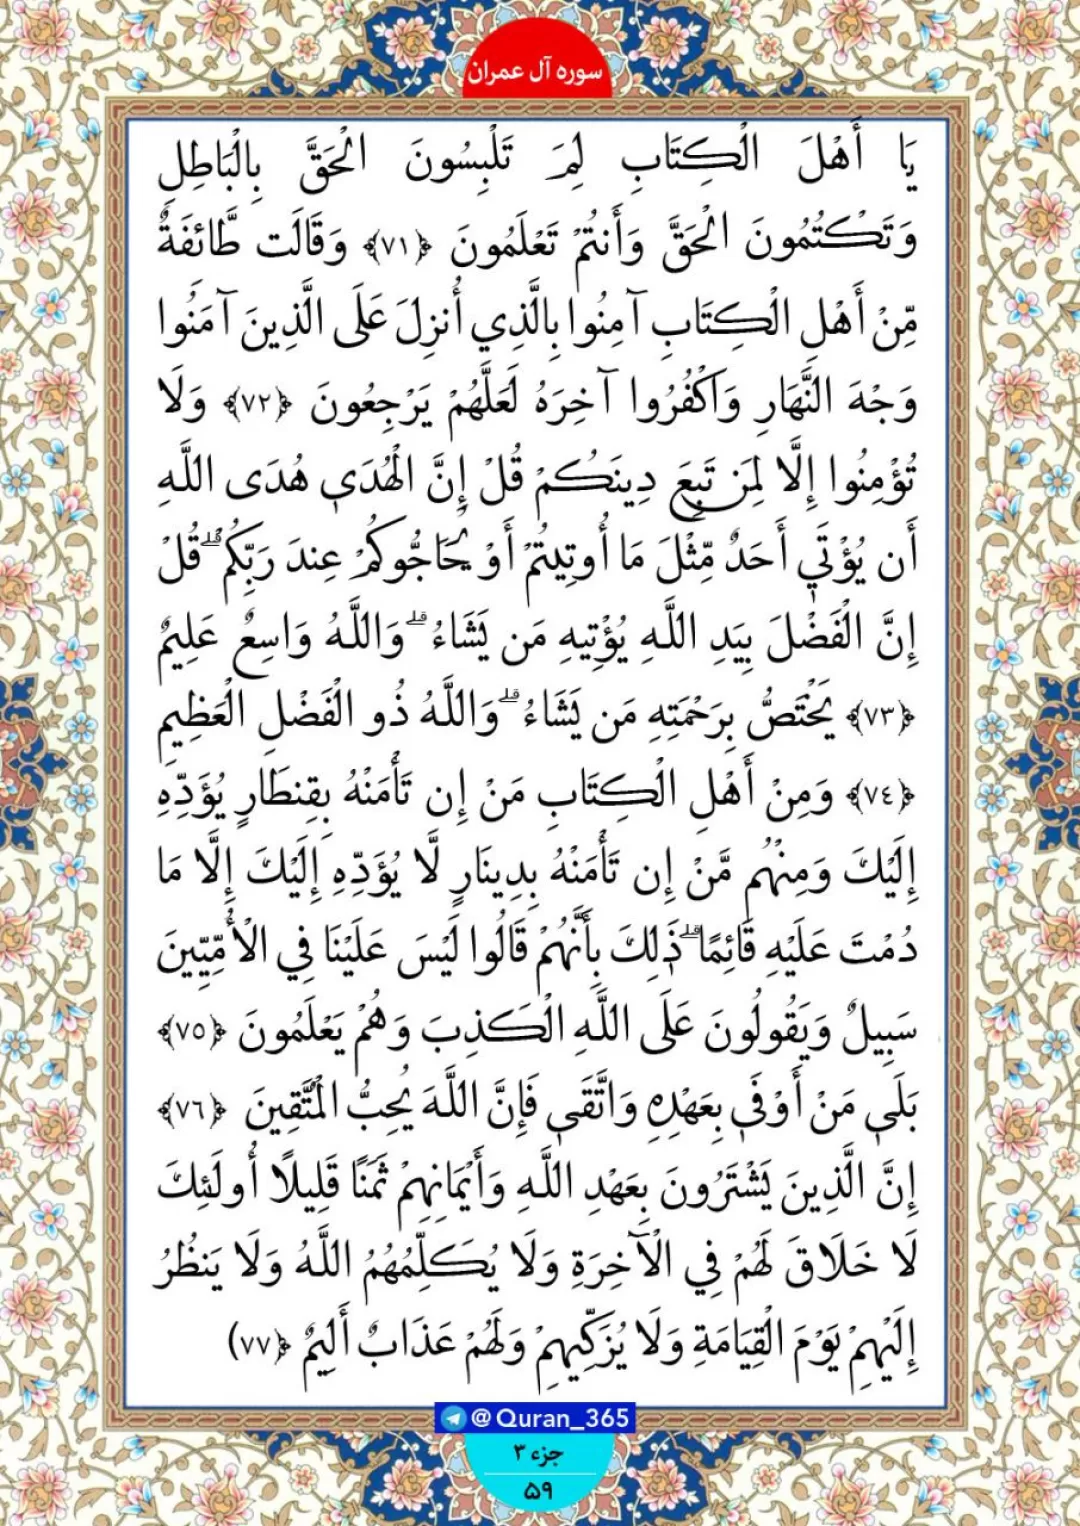 سوره آل عمران
يَا أَهْلَ الْكِتَابِ لِمَ تَلْبِسُونَ الْحَقَّ بِالْبَاطِلِ
وَتَكْتُمُونَ الْحَقَّ وَأَنتُمْ تَعْلَمُونَ ﴿٧١﴾ وَقَالَت طَّائِفَةٌ
مِّنْ أَهْلِ الْكِتَابِ آمِنُوا بِالَّذِي أُنزِلَ عَلَى الَّذِينَ آمَنُوا
وَجْهَ النَّهَارِ وَاكْفُرُوا آخِرَهُ لَعَلَّهُمْ يَرْجِعُونَ ﴿٧٢﴾ وَلَا
تُؤْمِنُوا إِلَّا لِمَن تَبِعَ دِينَكُمْ قُلْ إِنَّ الْهُدَىٰ هُدَى اللَّهِ
أَن يُؤْتَىٰ أَحَدٌ مِّثْلَ مَا أُوتِيتُمْ أَوْ يُحَاجُّوكُمْ عِندَ رَبِّكُمْ ۗ قُلْ
إِنَّ الْفَضْلَ بِيَدِ اللَّهِ يُؤْتِيهِ مَن يَشَاءُ ۗ وَاللَّهُ وَاسِعٌ عَلِيمٌ
﴿٧٣﴾ يَخْتَصُّ بِرَحْمَتِهِ مَن يَشَاءُ ۗ وَاللَّهُ ذُو الْفَضْلِ الْعَظِيمِ
﴿٧٤﴾ وَمِنْ أَهْلِ الْكِتَابِ مَنْ إِن تَأْمَنْهُ بِقِنطَارٍ يُؤَدِّهِ
إِلَيْكَ وَمِنْهُم مَّنْ إِن تَأْمَنْهُ بِدِينَارٍ لَّا يُؤَدِّهِ إِلَيْكَ إِلَّا مَا
دُمْتَ عَلَيْهِ قَائِمًا ۗ ذَٰلِكَ بِأَنَّهُمْ قَالُوا لَيْسَ عَلَيْنَا فِي الْأُمِّيِّينَ
سَبِيلٌ وَيَقُولُونَ عَلَى اللَّهِ الْكَذِبَ وَهُمْ يَعْلَمُونَ ﴿٧٥﴾
بَلَىٰ مَنْ أَوْفَىٰ بِعَهْدِهِ وَاتَّقَىٰ فَإِنَّ اللَّهَ يُحِبُّ الْمُتَّقِينَ ﴿٧٦﴾
إِنَّ الَّذِينَ يَشْتَرُونَ بِعَهْدِ اللَّهِ وَأَيْمَانِهِمْ ثَمَنًا قَلِيلًا أُولَٰئِكَ
لَا خَلَاقَ لَهُمْ فِي الْآخِرَةِ وَلَا يُكَلِّمُهُمُ اللَّهُ وَلَا يَنظُرُ
إِلَيْهِمْ يَوْمَ الْقِيَامَةِ وَلَا يُزَكِّيهِمْ وَلَهُمْ عَذَابٌ أَلِيمٌ ﴿٧٧)
@Quran_365
جزء ۳
۵۹